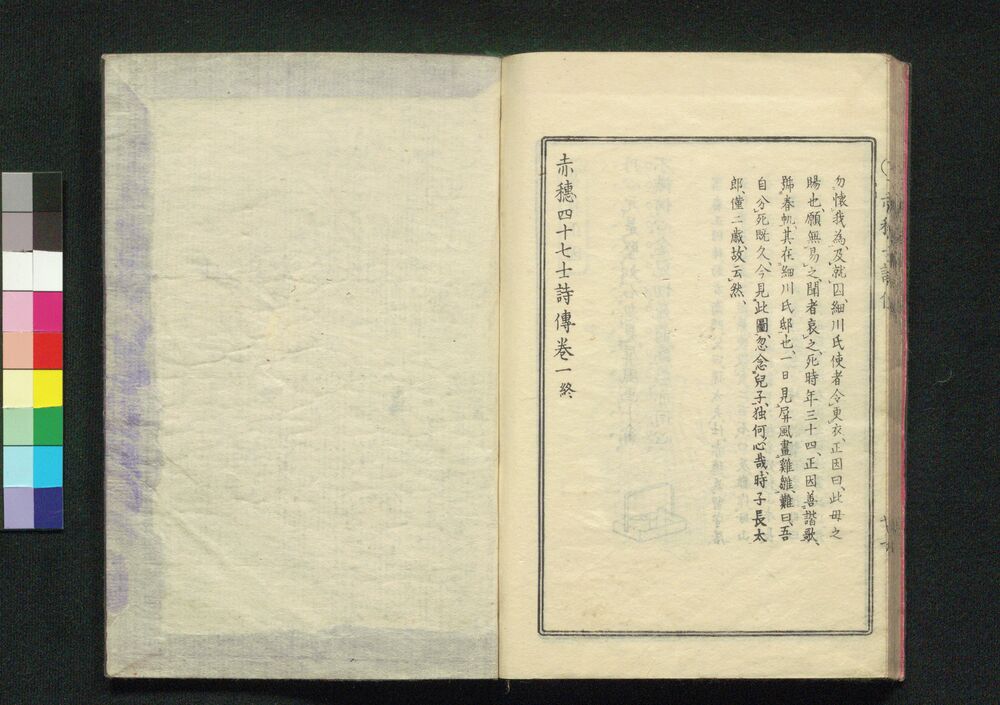 勿懷我為、及就囚、細川氏使者令更衣、正因曰、此母之
賜也、願無易之、聞者哀之、死時年三十四、正因善諧歌、
號春帆、其在細川氏邸也、一日見屏風畫雞雛、難曰、吾
自分死既久、今見此圖、忽念兒子、独何心哉、時子長太
郎、僅二歲、故云然、
赤穗四十七士詩傳卷一終